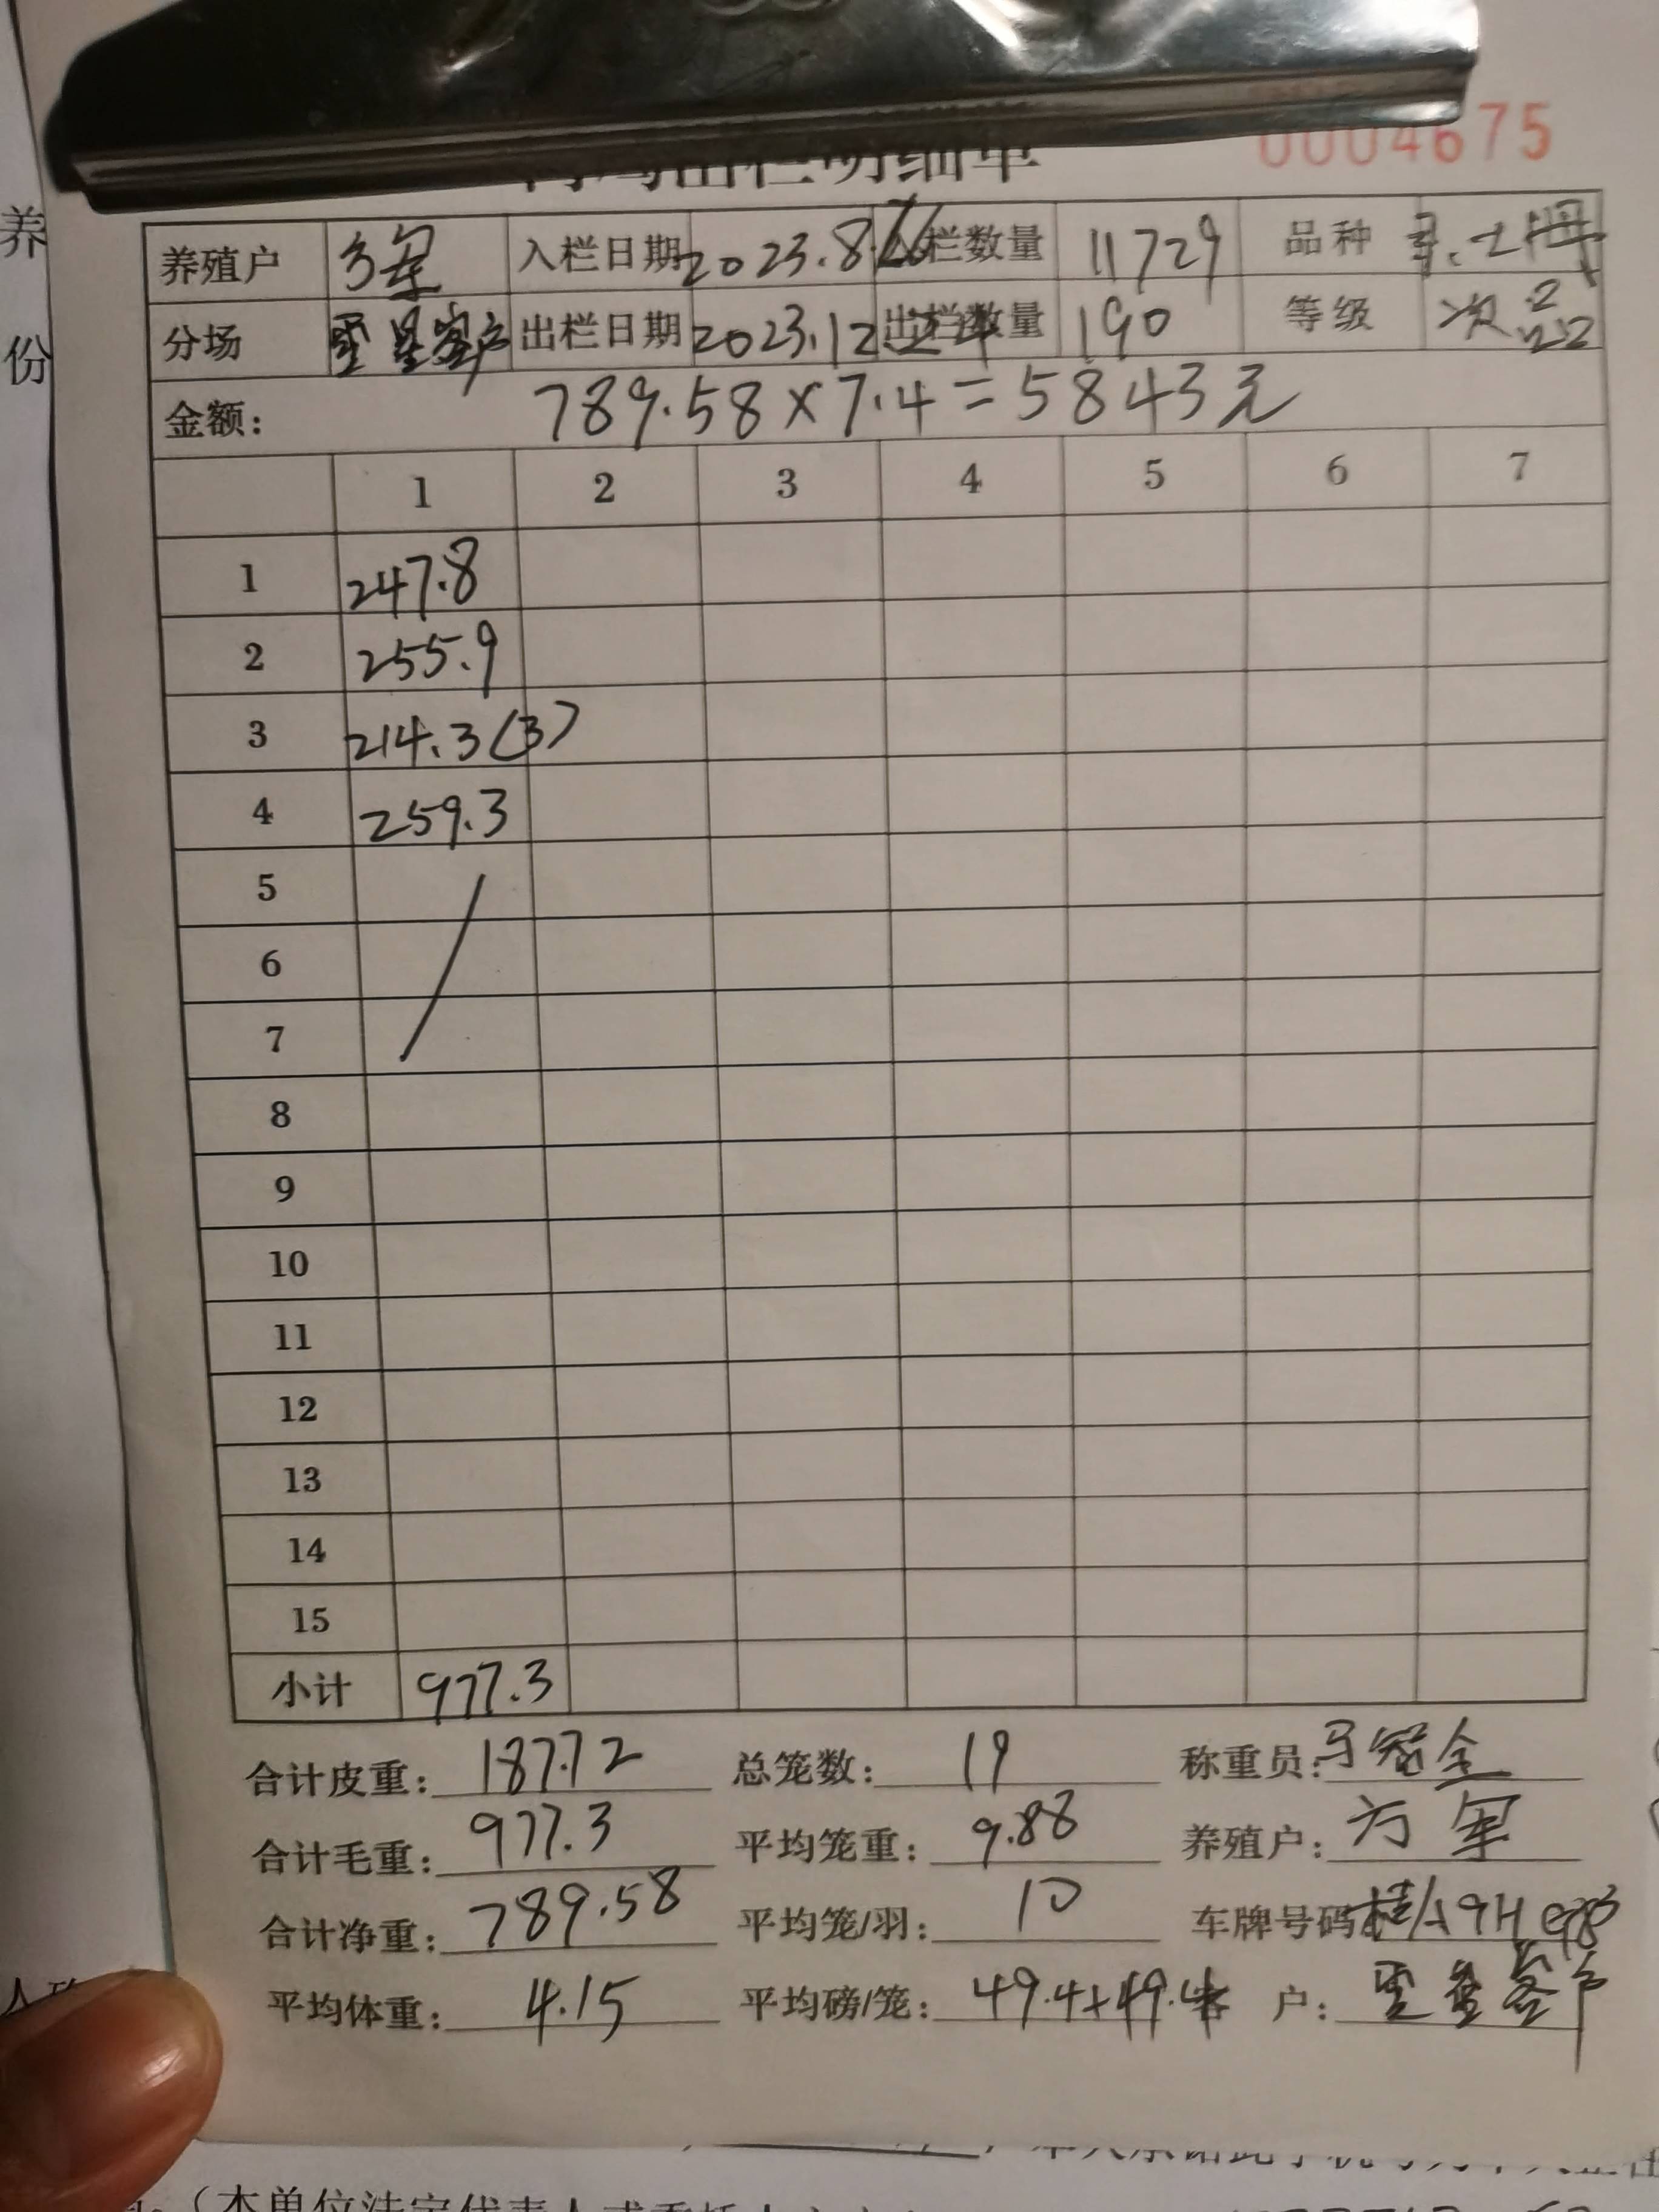 0004675
出栏明细单
养殖户 方军 入栏日期 2023.8.26 入栏数量 11729 品种
分场 出栏日期 2023.12.24 出栏数量 190 等级 次品
金额: 789.58×7.4=5843元
1 2 3 4 5 6 7
1 247.8
2 255.9
3 214.3(3)
4 259.3
5
6
7
8
9
10
11
12
13
14
15
小计 977.3
合计皮重: 187.72 总笼数: 19 称重员:
合计毛重: 977.3 平均笼重: 9.88 养殖户: 方军
合计净重: 789.58 平均笼/羽: 10 车牌号码
平均体重: 4.15 平均磅/笼: 49.4+49.4 客户:
养
份